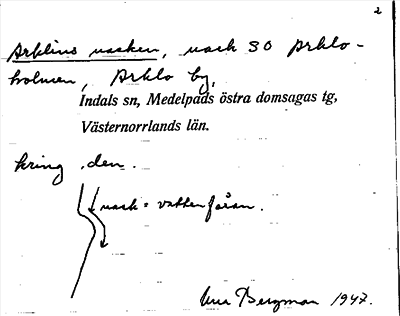 2
Arklins nacken, nack SO Arklo-
holmen, Arklo by,
Indals sn, Medelpads östra domsagas tg,
Västernorrlands län.
kring den.
nack = vattenfåran.
Bergman 1947.